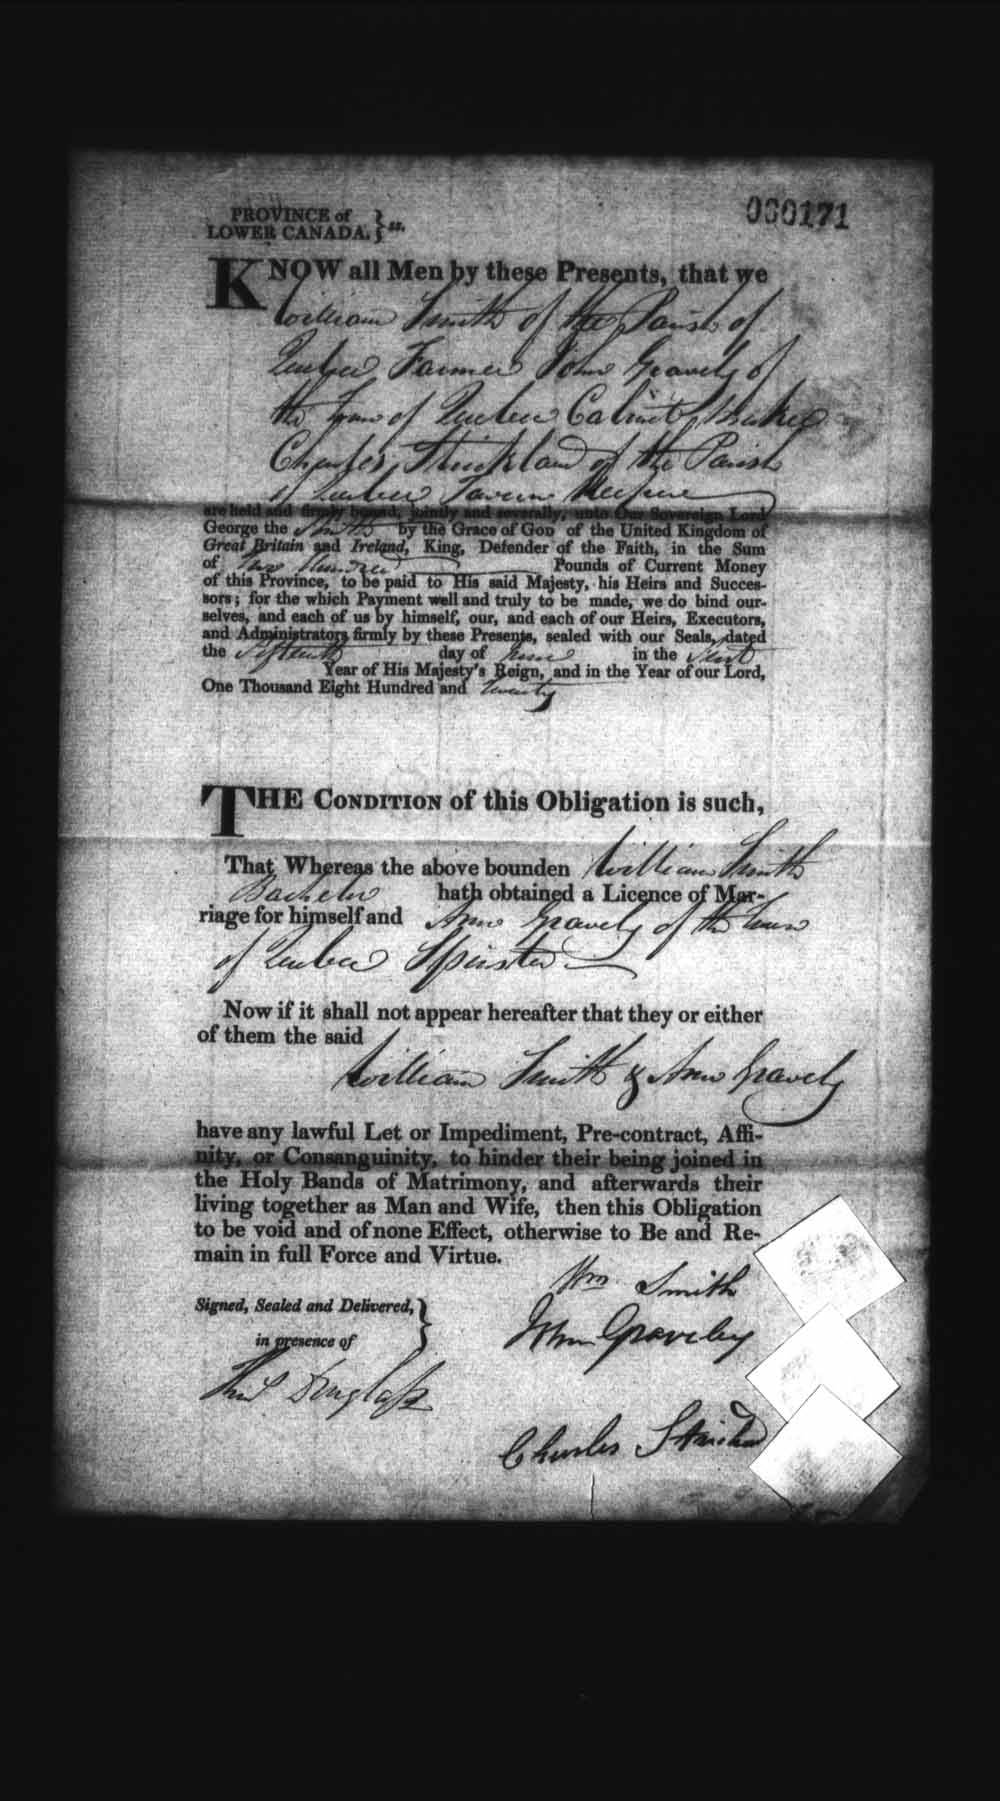 PROVINCE of } ss.
LOWER CANADA, }
000171
KNOW all Men by these Presents, that we
William Smith of the Parish of
Quebec Farmer John Gravely of
the Town of Quebec Cabinet Maker
Charles Strickland of the Parish
of Quebec Tavern Keeper
are held and firmly bound, jointly and severally, unto Our Sovereign Lord
George the by the Grace of GOD of the United Kingdom of
Great Britain and Ireland, King, Defender of the Faith, in the Sum
of Two Hundred Pounds of Current Money
of this Province, to be paid to His said Majesty, his Heirs and Succes-
sors; for the which Payment well and truly to be made, we do bind our-
selves, and each of us by himself, our, and each of our Heirs, Executors,
and Administrators firmly by these Presents, sealed with our Seals, dated
the Fifteenth day of June in the First
Year of His Majesty's Reign, and in the Year of our Lord,
One Thousand Eight Hundred and twenty
THE CONDITION of this Obligation is such,
That Whereas the above bounden William Smith
Bachelor hath obtained a Licence of Mar-
riage for himself and Ann Gravely of the Town
of Quebec Spinster
Now if it shall not appear hereafter that they or either
of them the said
William Smith & Ann Gravely
have any lawful Let or Impediment, Pre-contract, Affi-
nity, or Consanguinity, to hinder their being joined in
the Holy Bands of Matrimony, and afterwards their
living together as Man and Wife, then this Obligation
to be void and of none Effect, otherwise to Be and Re-
main in full Force and Virtue.
Signed, Sealed and Delivered, }
in presence of
Wm Smith
John Graveley
Douglass
Charles